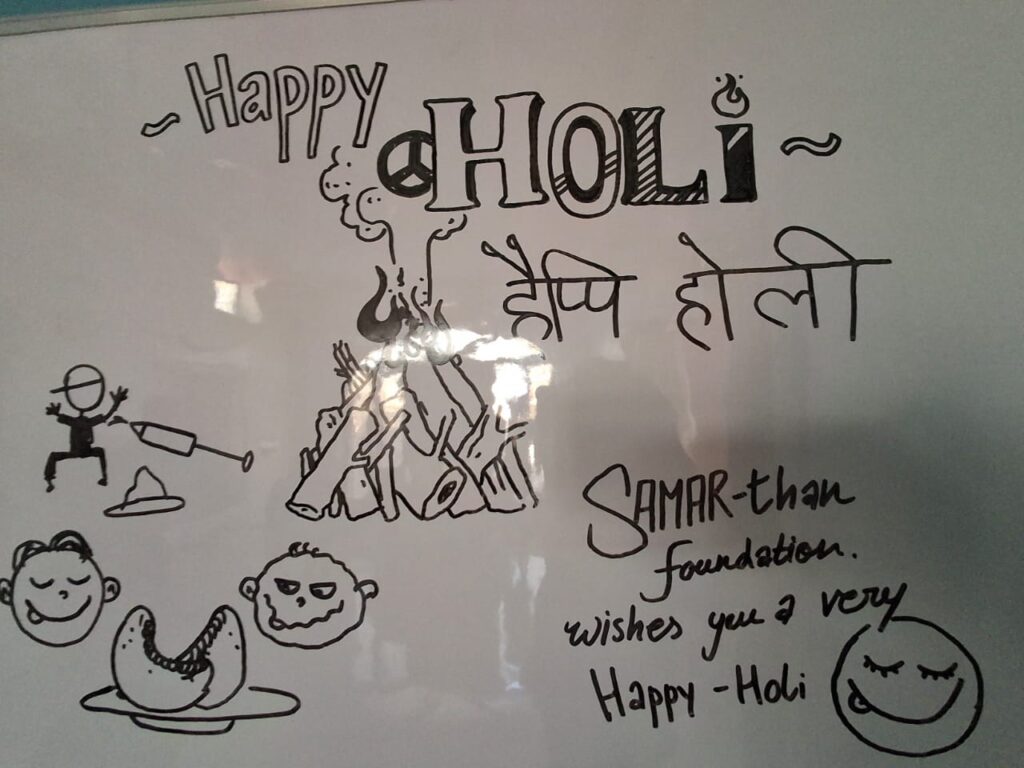 ~ Happy HOLi ~
हैप्पि होली
SAMAR-than
foundation.
wishes you a very
Happy - Holi